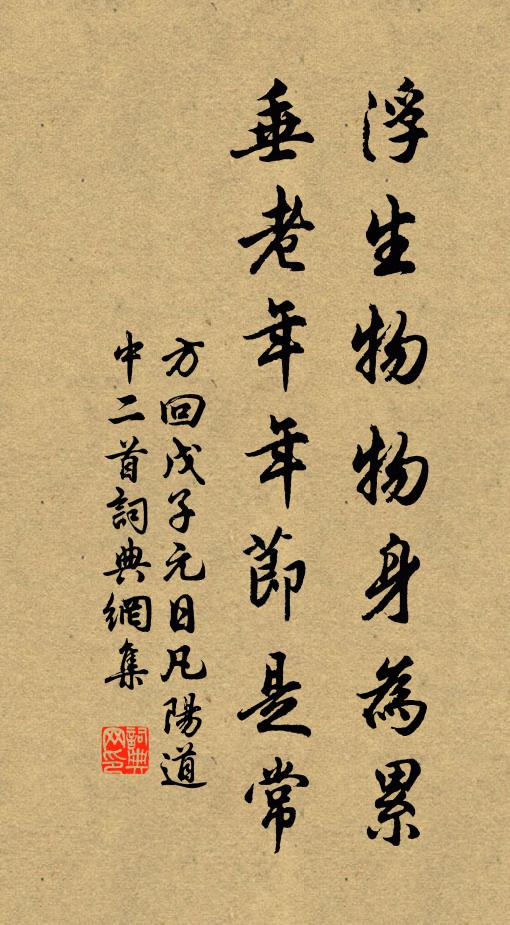 浮生物物身為累
垂老年年節是常
方回戊子元日凡陽道
中二首詞典網集
詞典
网印